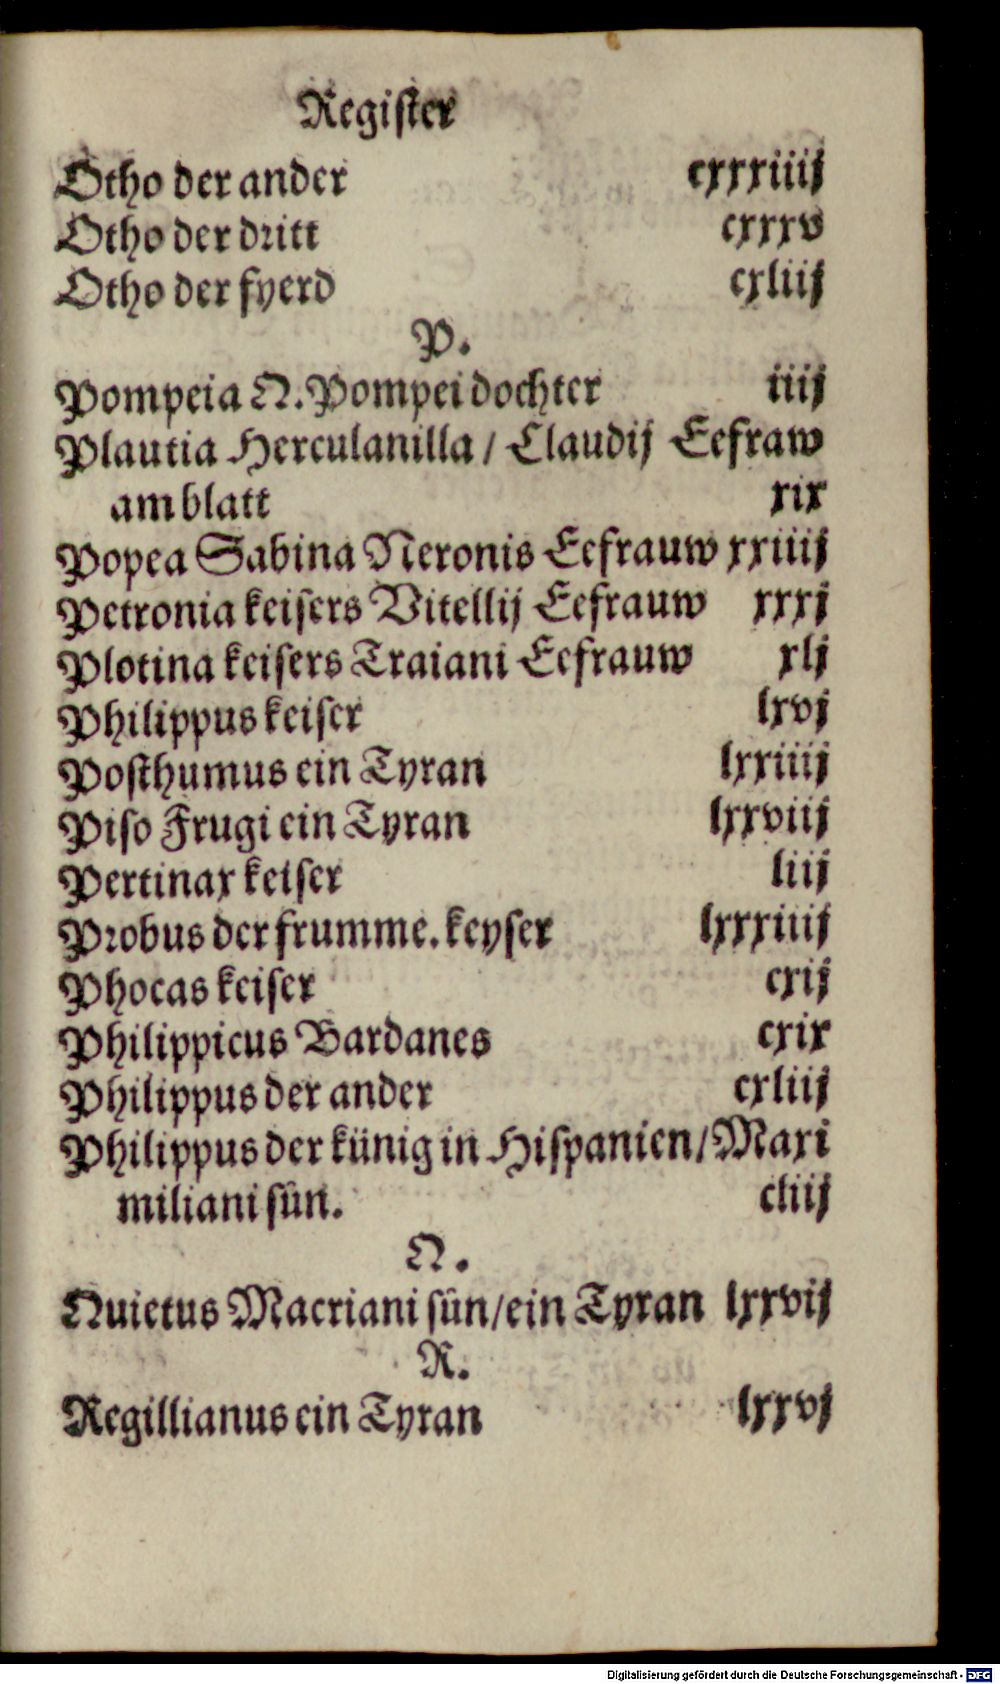 Register
Otho der ander cxxxiiij
Otho der dritt cxxxv
Otho der fyerd cxliij
P.
Pompeia Q. Pompei dochter iiij
Plautia Herculanilla / Claudij Eefraw
am blatt xix
Popea Sabina Neronis Eefrauw xxiiij
Petronia keisers Vitellij Eefrauw xxxj
Plotina keisers Traiani Eefrauw xlj
Philippus keiser lxvj
Posthumus ein Tyran lxxiiij
Piso Frugi ein Tyran lxxviij
Pertinax keiser liij
Probus der frumme. keyser lxxxiiij
Phocas keiser cxij
Philippicus Bardanes cxix
Philippus der ander cxliij
Philippus der künig in Hispanien / Maxi
miliani sün. cliij
Q.
Quietus Macriani sün / ein Tyran lxxvij
R.
Regillianus ein Tyran lxxvj
Digitalisierung gefördert durch die Deutsche Forschungsgemeinschaft - DFG